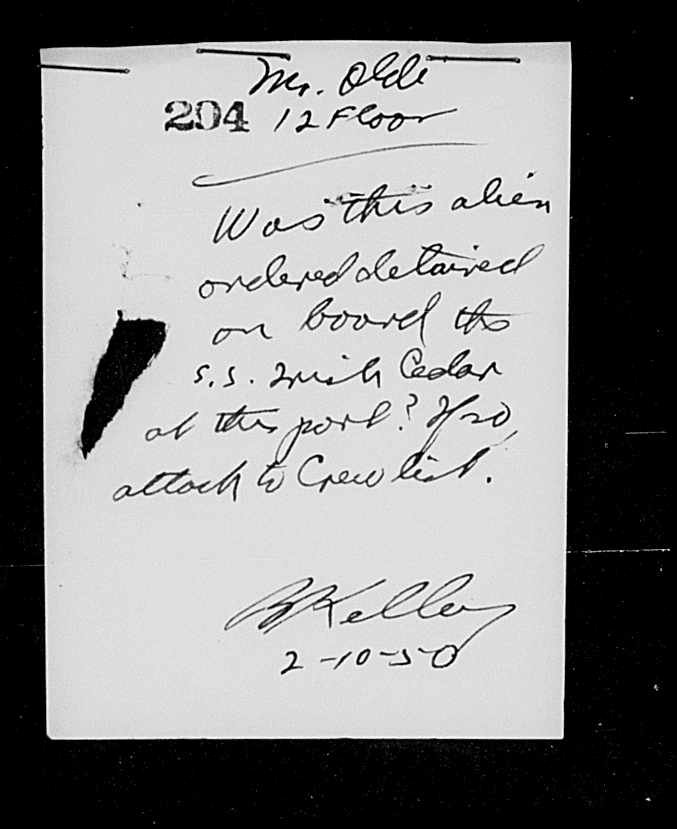 Mr. Olde
204 12 Floor
Was this alien
ordered detained
on board the
S.S. Irish Cedar
at this port? If so,
attach to Crew list.
B Kelley
2-10-50